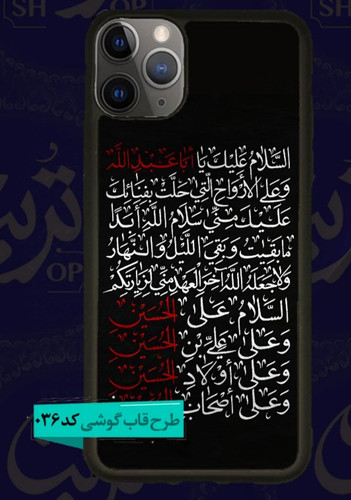 SH
OP
السلام علیك یا أبا عبد الله
وعلی الأرواح التي حلت بفنائك
علیك مني سلام الله أبدا
ما بقیت وبقي اللیل والنهار
ولا جعله الله آخر العهد مني لزیارتکم
السلام علی الحسین
وعلی علي بن الحسین
وعلی أولاد الحسین
وعلی أصحاب
طرح قاب گوشی کد ۰۳۶